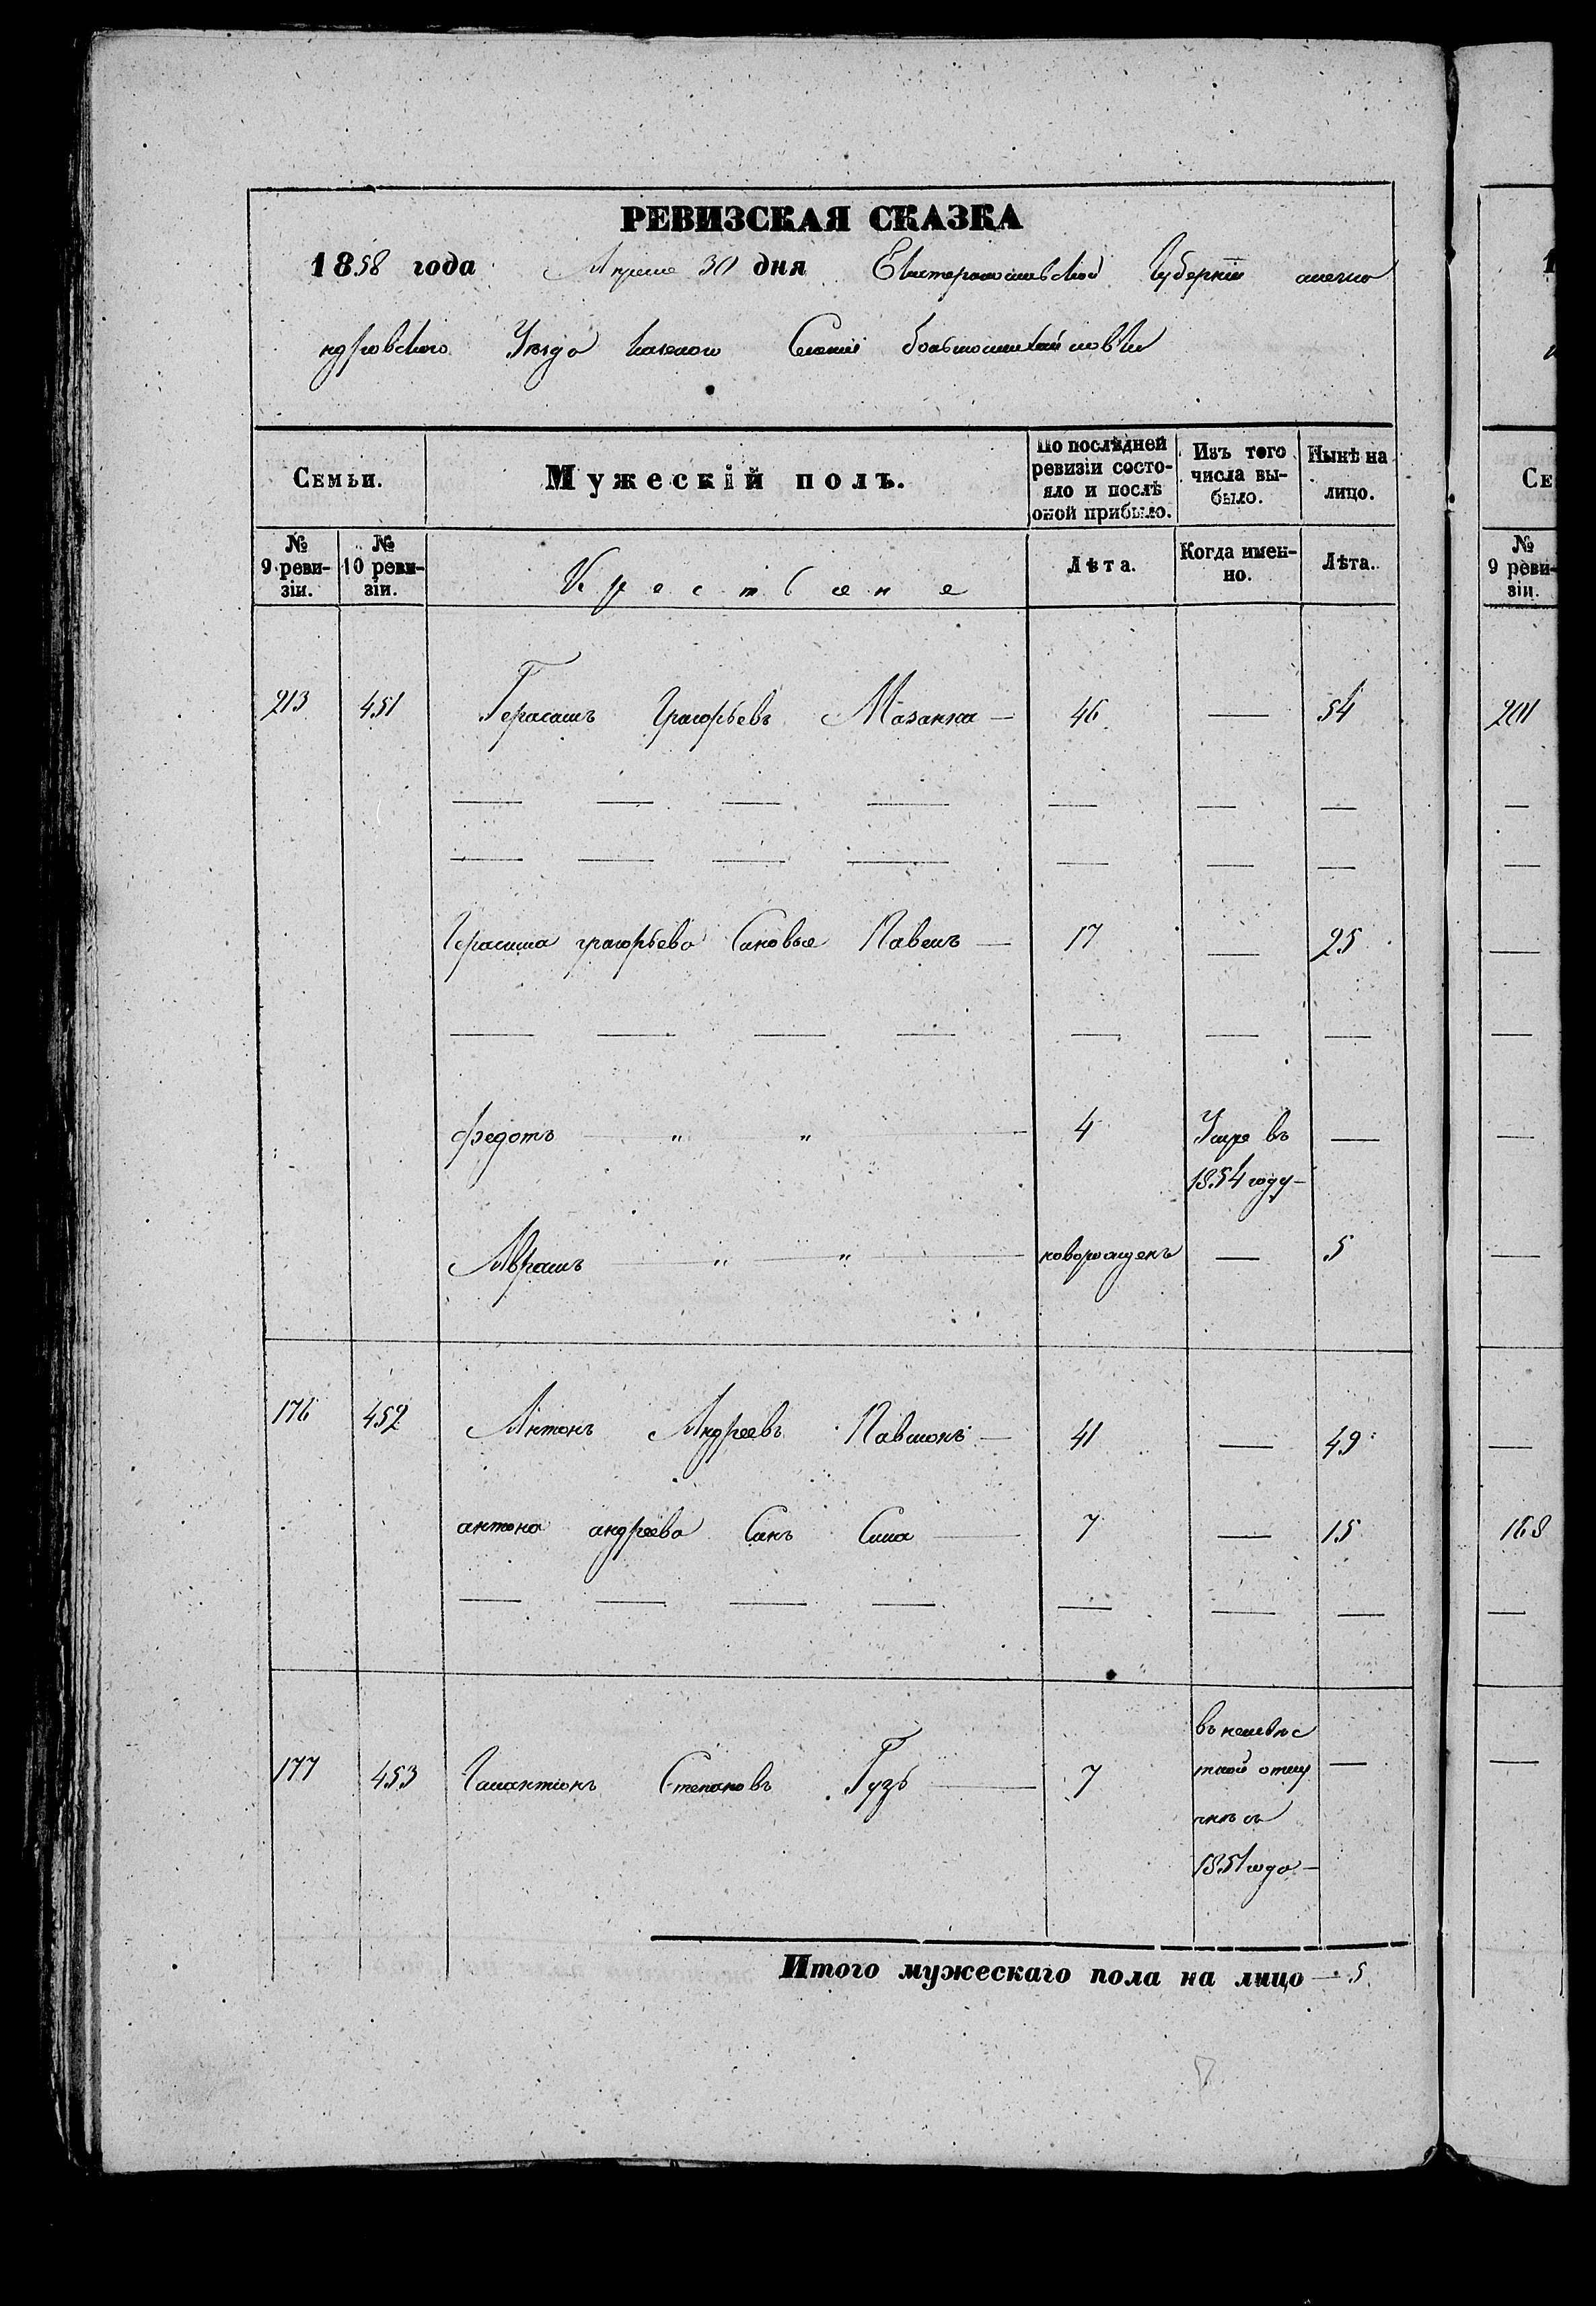 РЕВИЗСКАЯ СКАЗКА
1858 года Апреля 30 дня Екатеринославской Губерніи алекса
ндровского Уезда казеного Селенія большомихайловки
Семьи. Мужескій полъ. По послѣдней ревизіи состояло и послѣ оной прибыло. Изъ того числа выбыло. Нынѣ на лицо.
№ 9 ревизіи. № 10 ревизіи. Крестьяне Лѣта. Когда именно. Лѣта.
213 451 Герасимъ Григорьевъ Мазанка — 46 — 54
Герасима григорьева Сыновья Павелъ — 17 — 25
Федотъ — „ — „ — 4 Умре въ —
1854 году —
Абрамъ — „ — „ — новорожденъ — 5
176 452 Антонъ Андреевъ — 41 — 49
антона андреева Сынъ Сила — 7 — 15
177 453 Галактіонъ Степановъ Гузь — 7 въ неизвѣс —
тной отлу
чкѣ съ
1851 года —
Итого мужескаго пола на лицо — 5
1
Се
№
9 реви-
зіи.
201
168